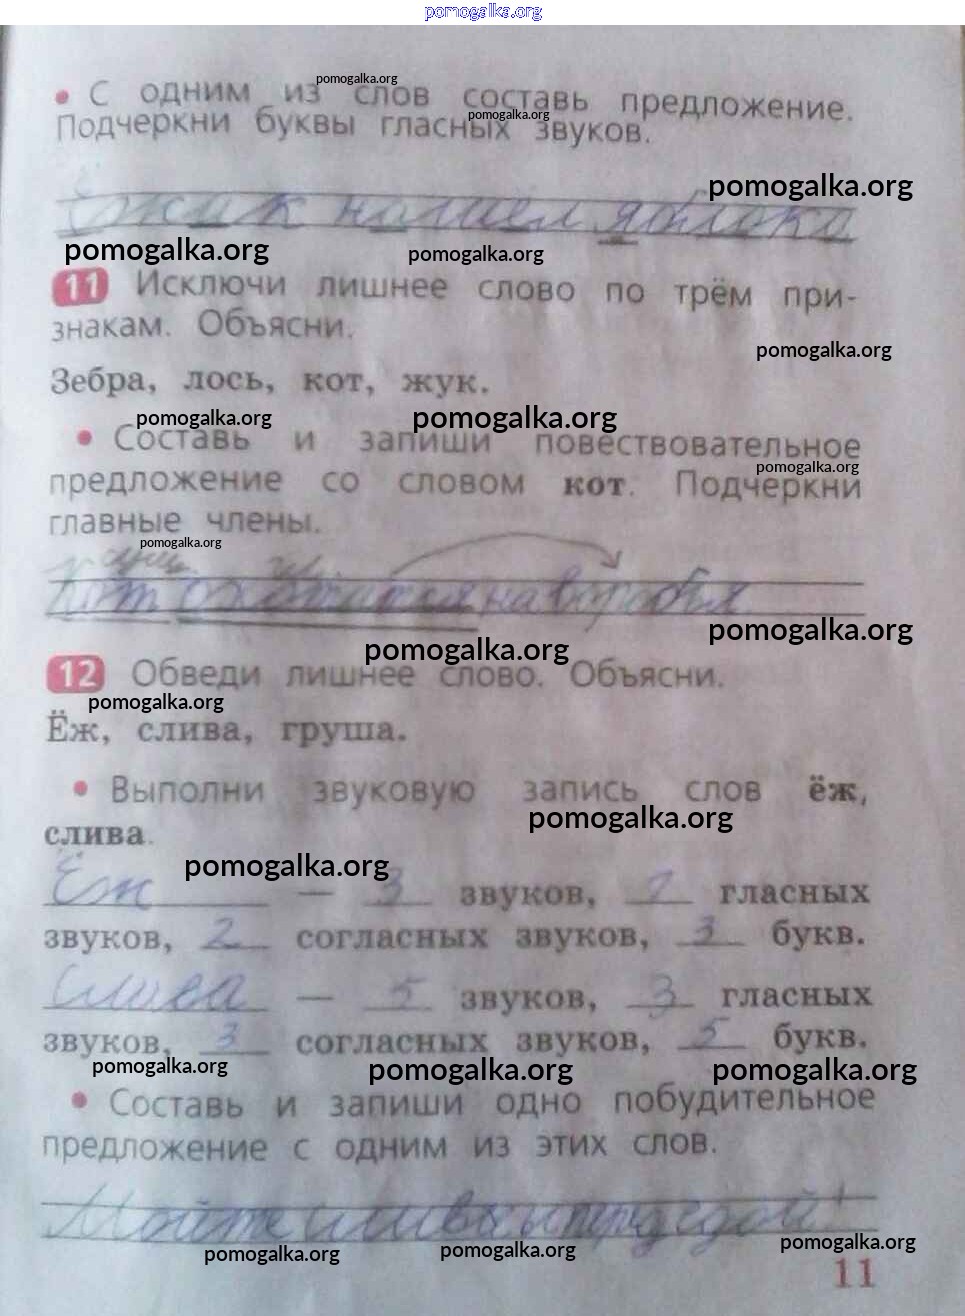 pomogalka.org
pomogalka.org
• С одним из слов составь предложение.
pomogalka.org
Подчеркни буквы гласных звуков.
pomogalka.org
Ёжик нашёл яблоко
pomogalka.org
pomogalka.org
11 Исключи лишнее слово по трём при-
знакам. Объясни.
pomogalka.org
Зебра, лось, кот, жук.
pomogalka.org
pomogalka.org
• Составь и запиши повествовательное
pomogalka.org
предложение со словом кот. Подчеркни
главные члены.
pomogalka.org
Кот охотится на воробья
pomogalka.org
pomogalka.org
12 Обведи лишнее слово. Объясни.
pomogalka.org
Ёж, слива, груша.
• Выполни звуковую запись слов ёж,
pomogalka.org
слива.
pomogalka.org
Ёж — 3 звуков, 1 гласных
звуков, 2 согласных звуков, 3 букв.
Слива — 5 звуков, 3 гласных
звуков, 3 согласных звуков, 5 букв.
pomogalka.org
pomogalka.org
pomogalka.org
• Составь и запиши одно побудительное
предложение с одним из этих слов.
Мойте сливы перед едой!
pomogalka.org
pomogalka.org
pomogalka.org
11